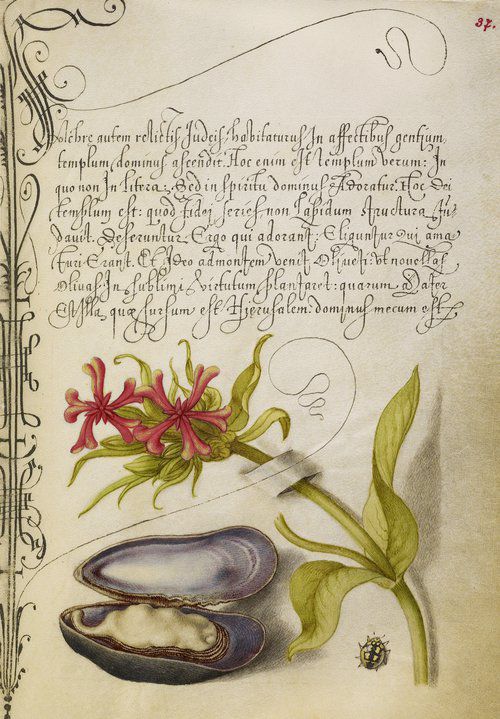 37.
autem relictis Judeis, habitaturus In affectibus gentium
templum, dominus ascendit. Hoc enim est Templum verum: In
quo non In litera: Sed in spiritu dominus Adoratur. Hoc Dei
templum est: quod fidei series, non lapidum structura fun-
davit. Deseruntur Ergo qui adorant: Eliguntur Qui ama-
turi Erant. Et Ideo ad montem venit Oliveti: Ut novellas
Olivas In sublimi virtutum plantaret: quarum Mater
Est Illa, quæ sursum est Hierusalem: dominus mecum est